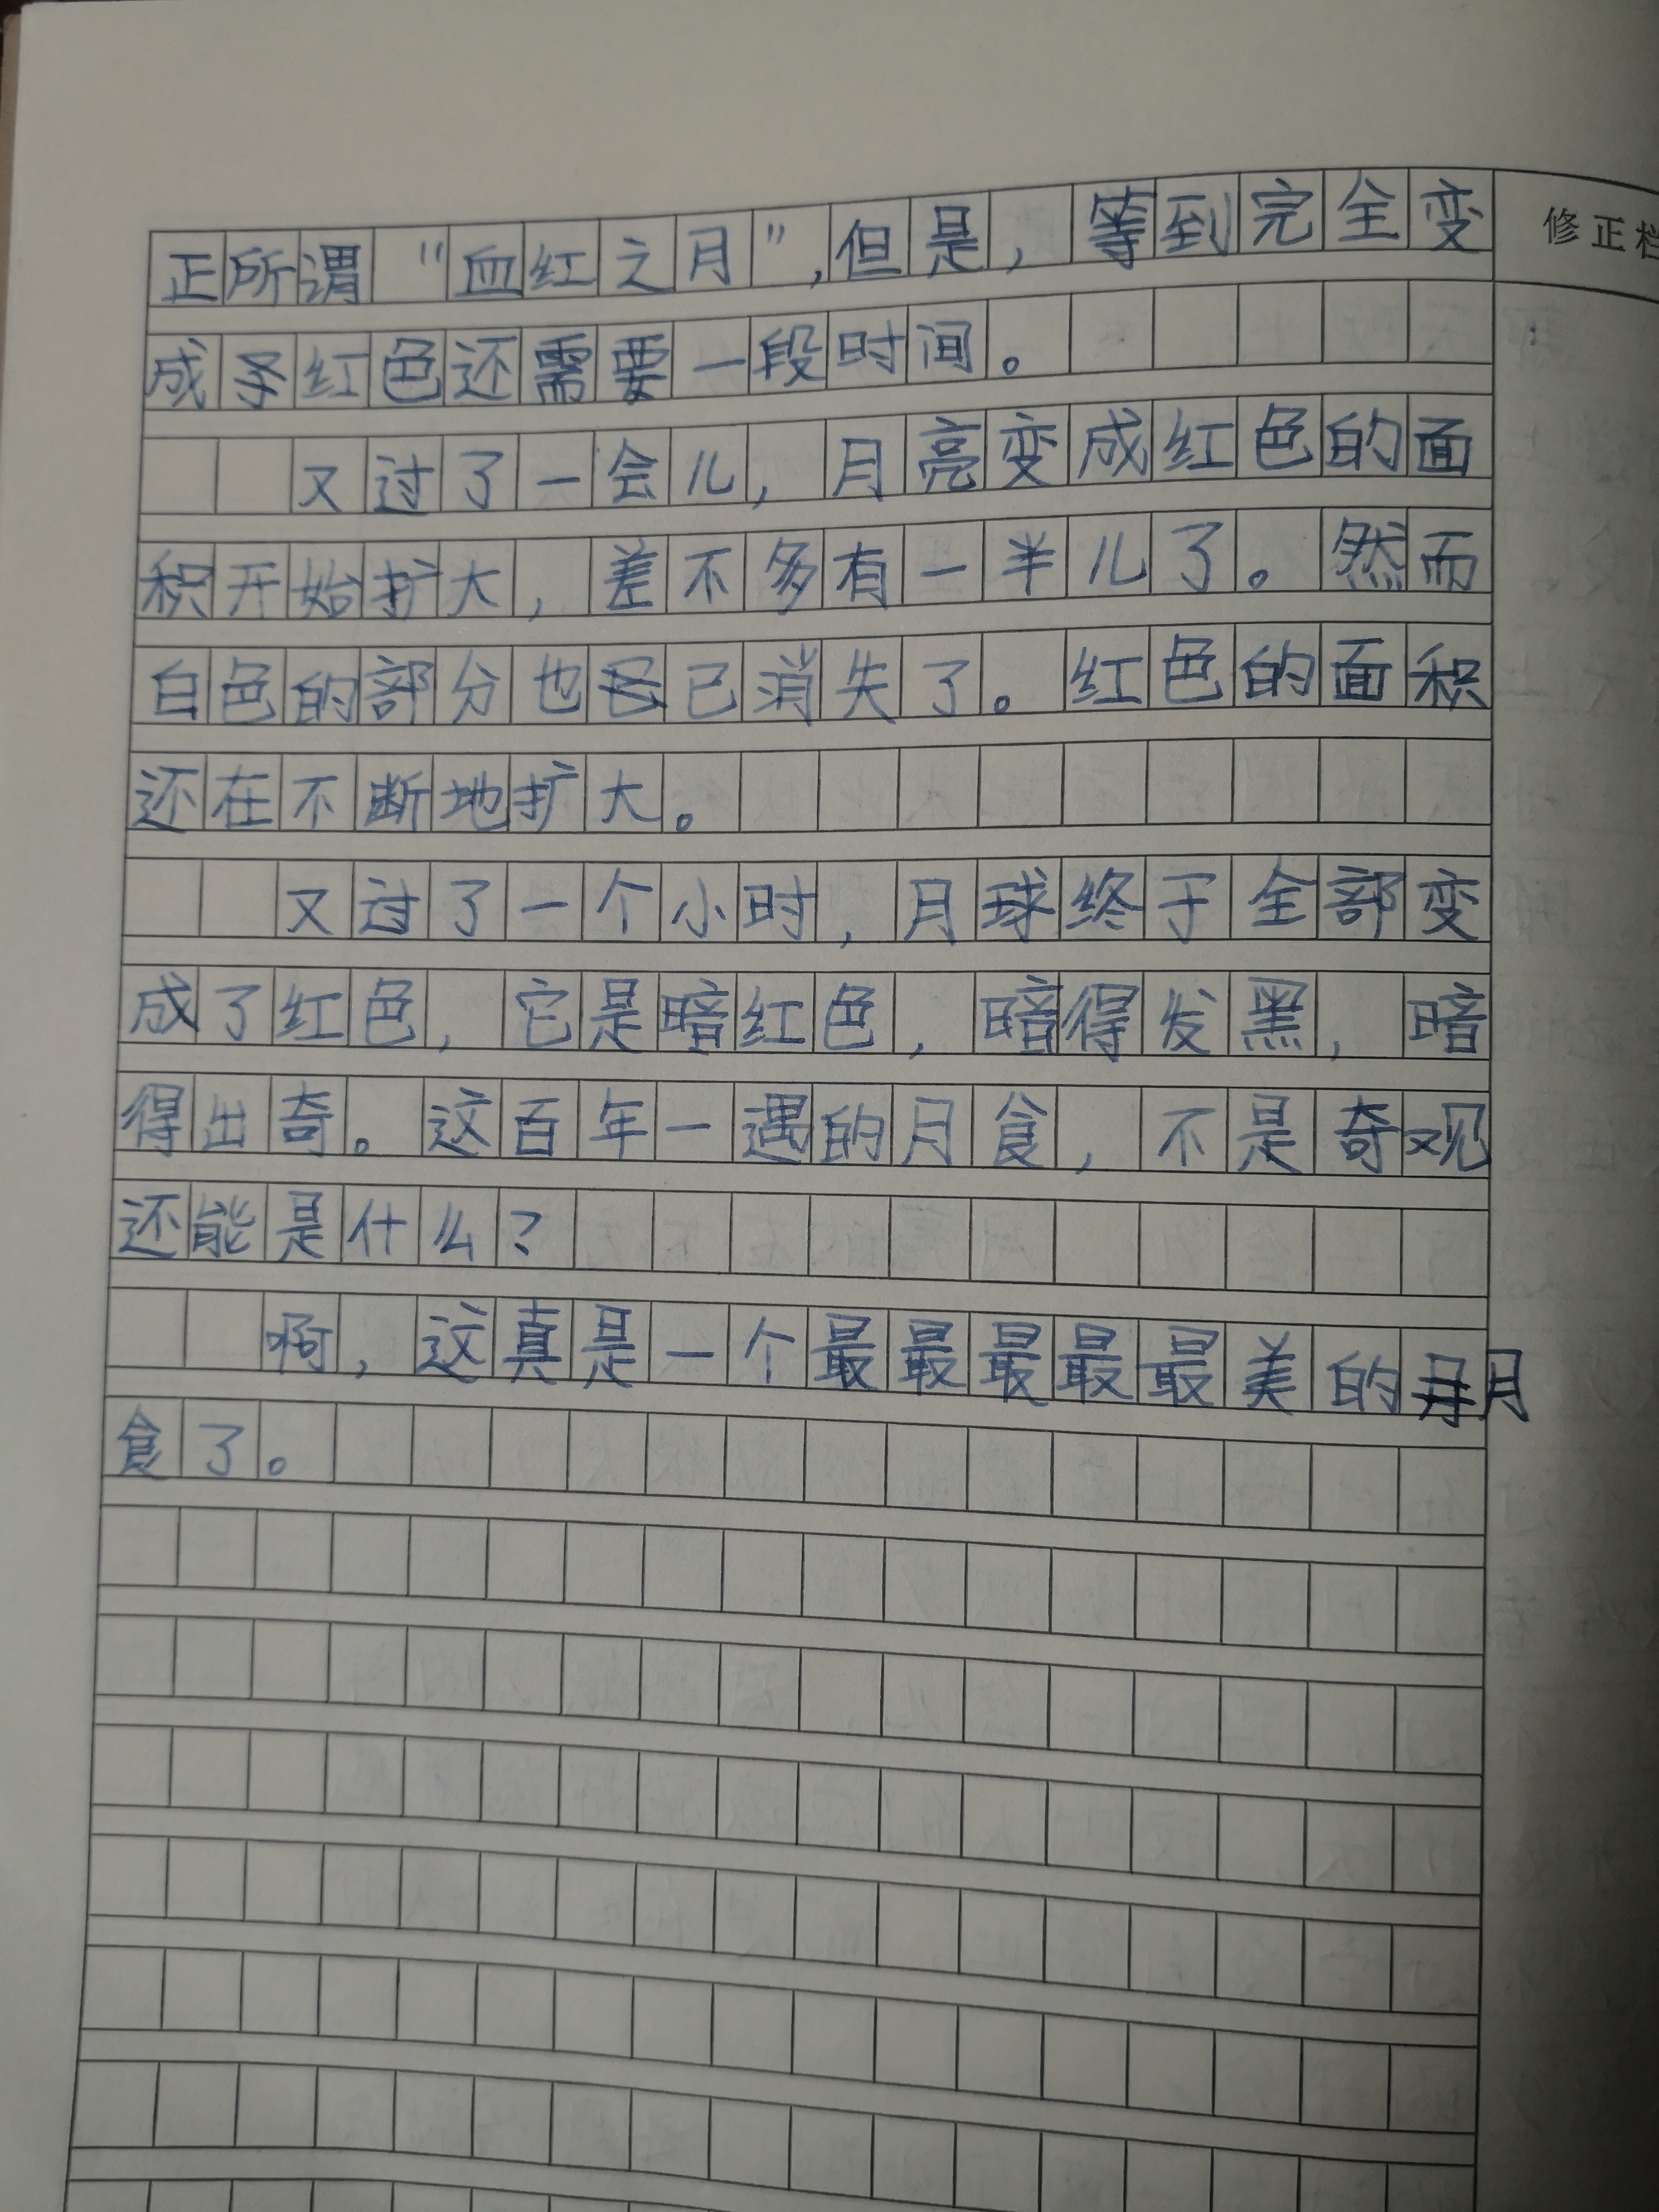 正所谓“血红之月”,但是,等到完全变
修正栏
成红色还需要一段时间。
又过了一会儿,月亮变成红色的面
积开始扩大,差不多有一半儿了。然而
白色的部分也已消失了。红色的面积
还在不断地扩大。
又过了一个小时,月球终于全部变
成了红色,它是暗红色,暗得发黑,暗
得出奇。这百年一遇的月食,不是奇观
还能是什么?
啊,这真是一个最最最最最美的月
食了。